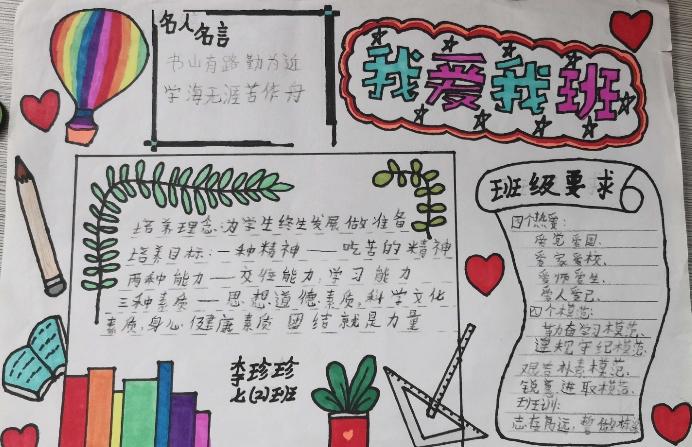 名人名言
书山有路勤为近
学海无涯苦作舟
我爱我班
培养理念:为学生终生发展做准备
培养目标:一种精神——吃苦的精神
两种能力——交往能力,学习能力
三种素质——思想道德素质,科学文化
素质,身心健康素质 团结就是力量
李珍珍
七(2)班
班级要求
四个热爱:
爱党爱国、
爱家爱校、
爱师爱生、
爱人爱己、
四个模范:
勤奋学习模范、
遵规守纪模范、
艰苦朴素模范、
锐意进取模范、
班训:
志存高远,誓做